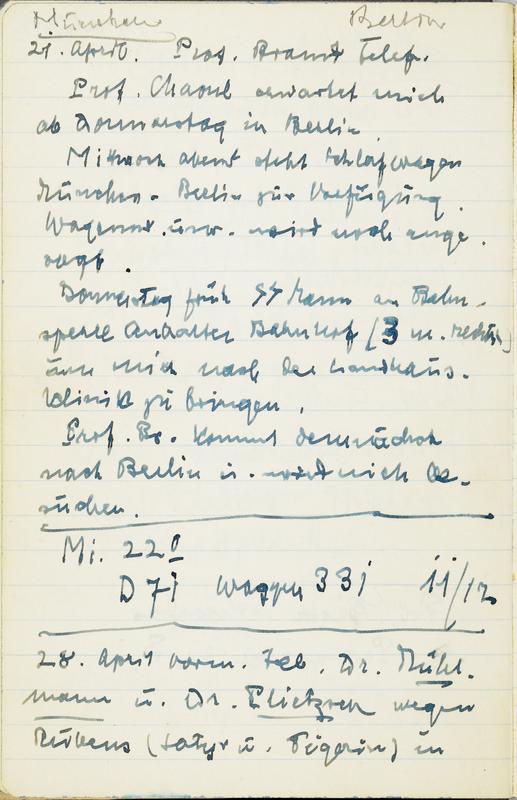 München Berlin
21. April. Prof. Brandt Telef.
Prof. Chaoul erwartet mich
ab Donnerstag in Berlin
Mittwoch abent steht Schlafwagen
München - Berlin zur Verfügung.
Wagennr. usw. wird noch ange-
sagt.
Donnerstag früh SS Mann an Bahn-
sperre Anhalter Bahnhof (3 m. rechts)
um mich nach der Landhaus-
klinik zu bringen.
Prof. Br. kommt demnächst
nach Berlin u. wird mich be-
suchen.
Mi. 22 0
D 71 Waggon 331 11/12
28. April vorm. Tel. Dr. Mühl-
mann u. Dr. Plietzsch wegen
Rubens (Satyr u. Tigerin) in